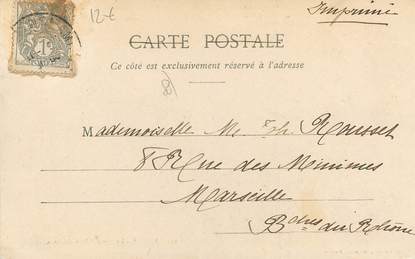 Imprimé
12-€
1c
CARTE POSTALE
Ce côté est exclusivement réservé à l'adresse
Mademoiselle M. Th. Rousset
8 Rue des Minimes
Marseille
Bches du Rhône